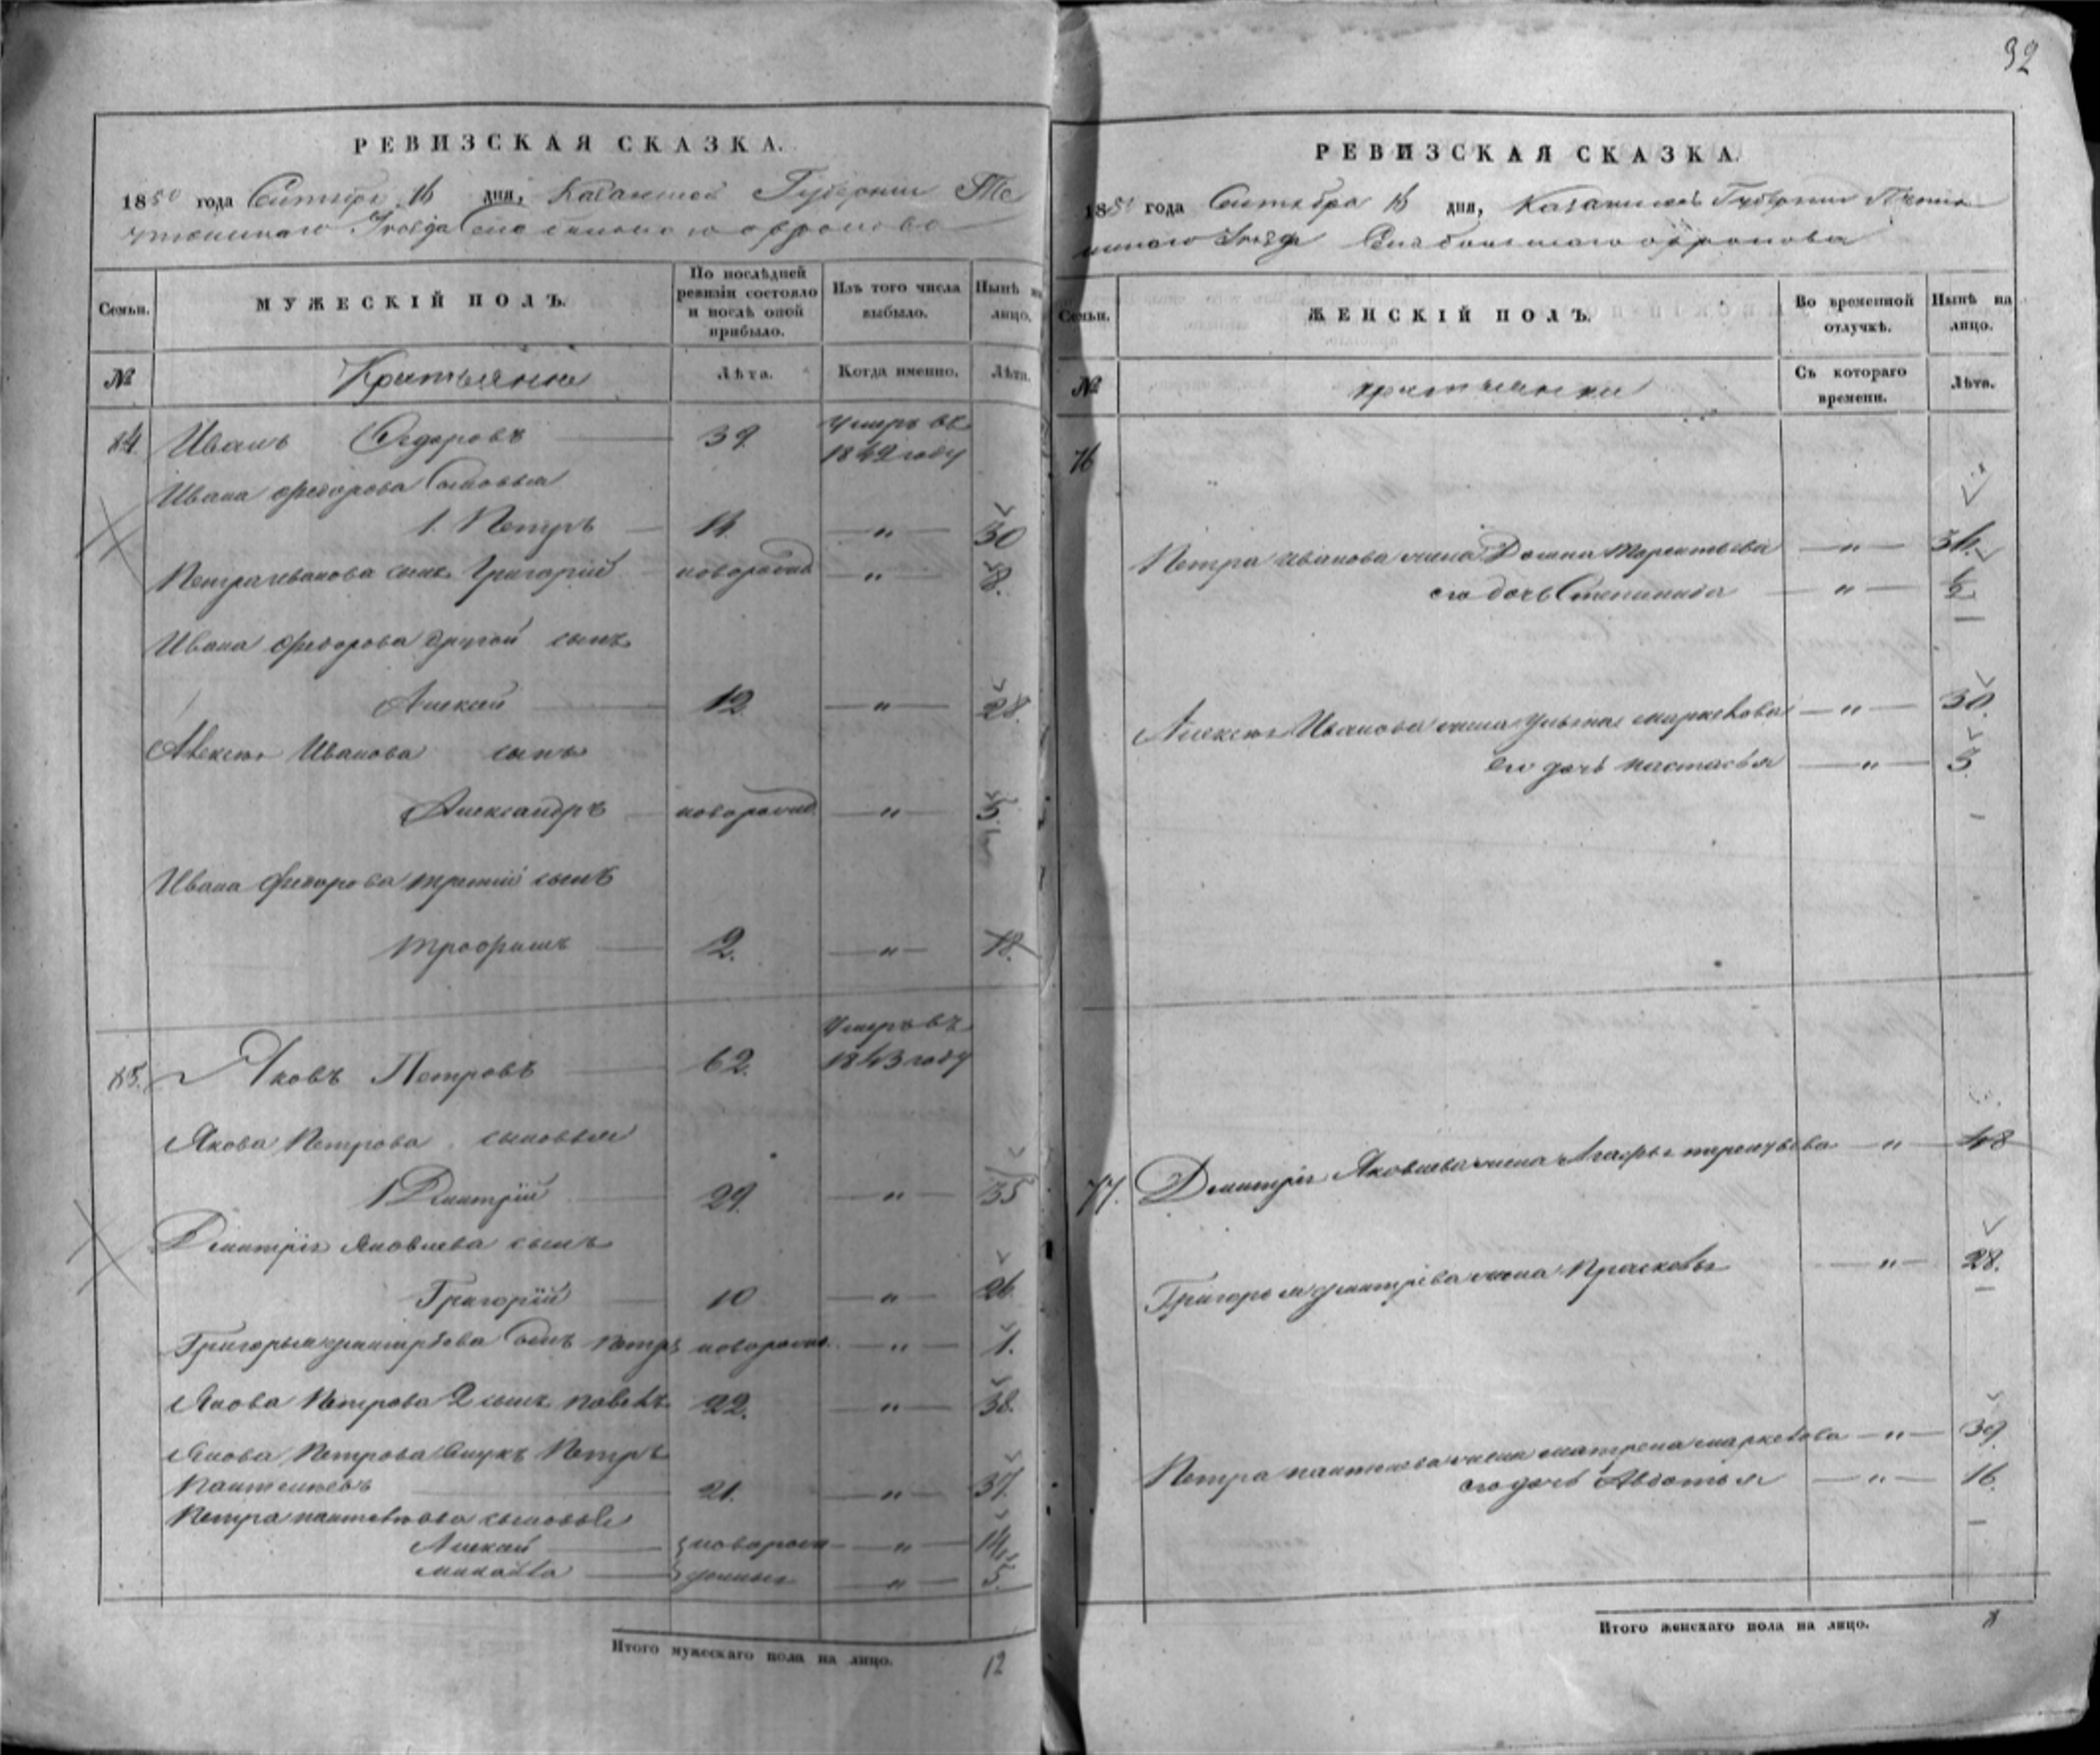 32
РЕВИЗСКАЯ СКАЗКА.
1850 года Сентября 16 дня, Казанской Губерніи Те
тюшскаго Уезда Села
Семьи.
МУЖЕСКІЙ ПОЛЪ.
По послѣдней ревизіи состояло и послѣ оной прибыло.
Изъ того числа выбыло.
Нынѣ на лицо.
№
Крестьяне
Лѣта.
Когда именно.
Лѣта.
84. Иванъ Федоровъ 39. Умеръ въ 1842 году
Ивана Федорова Сыновья
1. Петръ 14 " 30
Петра Иванова сынъ Григорій новорожд " 8.
Ивана Федорова другой сынъ
Алексей 12 " 28.
Алексея Иванова сынъ
Александръ новорожд " 5.
Ивана Федорова третій сынъ
Трофимъ 2. " 18.
85. Яковъ Петровъ 62. Умеръ въ 1843 году
Якова Петрова сыновья
1 Дмитрій 29. " 35
Дмитрія Яковлева сынъ
Григорій 10 " 26
Григорья Дмитріева сынъ Петръ новорожд. " 1.
Якова Петрова 2 сынъ Павелъ 22. " 38.
Якова Петрова Внукъ Петръ
Пантелѣевъ 21. " 37.
Петра Пантелѣева сыновья
Алексей новорож " 14
Михайла денныя " 5.
Итого мужескаго пола на лицо. 12
РЕВИЗСКАЯ СКАЗКА.
1850 года Сентября 16 дня, Казанской Губерніи Тетю
шскаго Уезда Села
Семьи.
ЖЕНСКІЙ ПОЛЪ.
Во временной отлучкѣ.
Нынѣ на лицо.
№
крестьянки
Съ котораго времени.
Лѣта.
76
Петра Иванова жена Домна Терентьева " 36.
его дочь Степанида " ½
Алексея Иванова жена Ульяна Маркелова " 30.
его дочь Настасья " 5
77. Дмитрія Яковлева жена Агафья " 48
Григорья Дмитріева жена Прасковья " 28.
Петра Пантелѣева жена Матрена Маркелова " 39.
его дочь Авдотья " 16.
Итого женскаго пола на лицо. 8